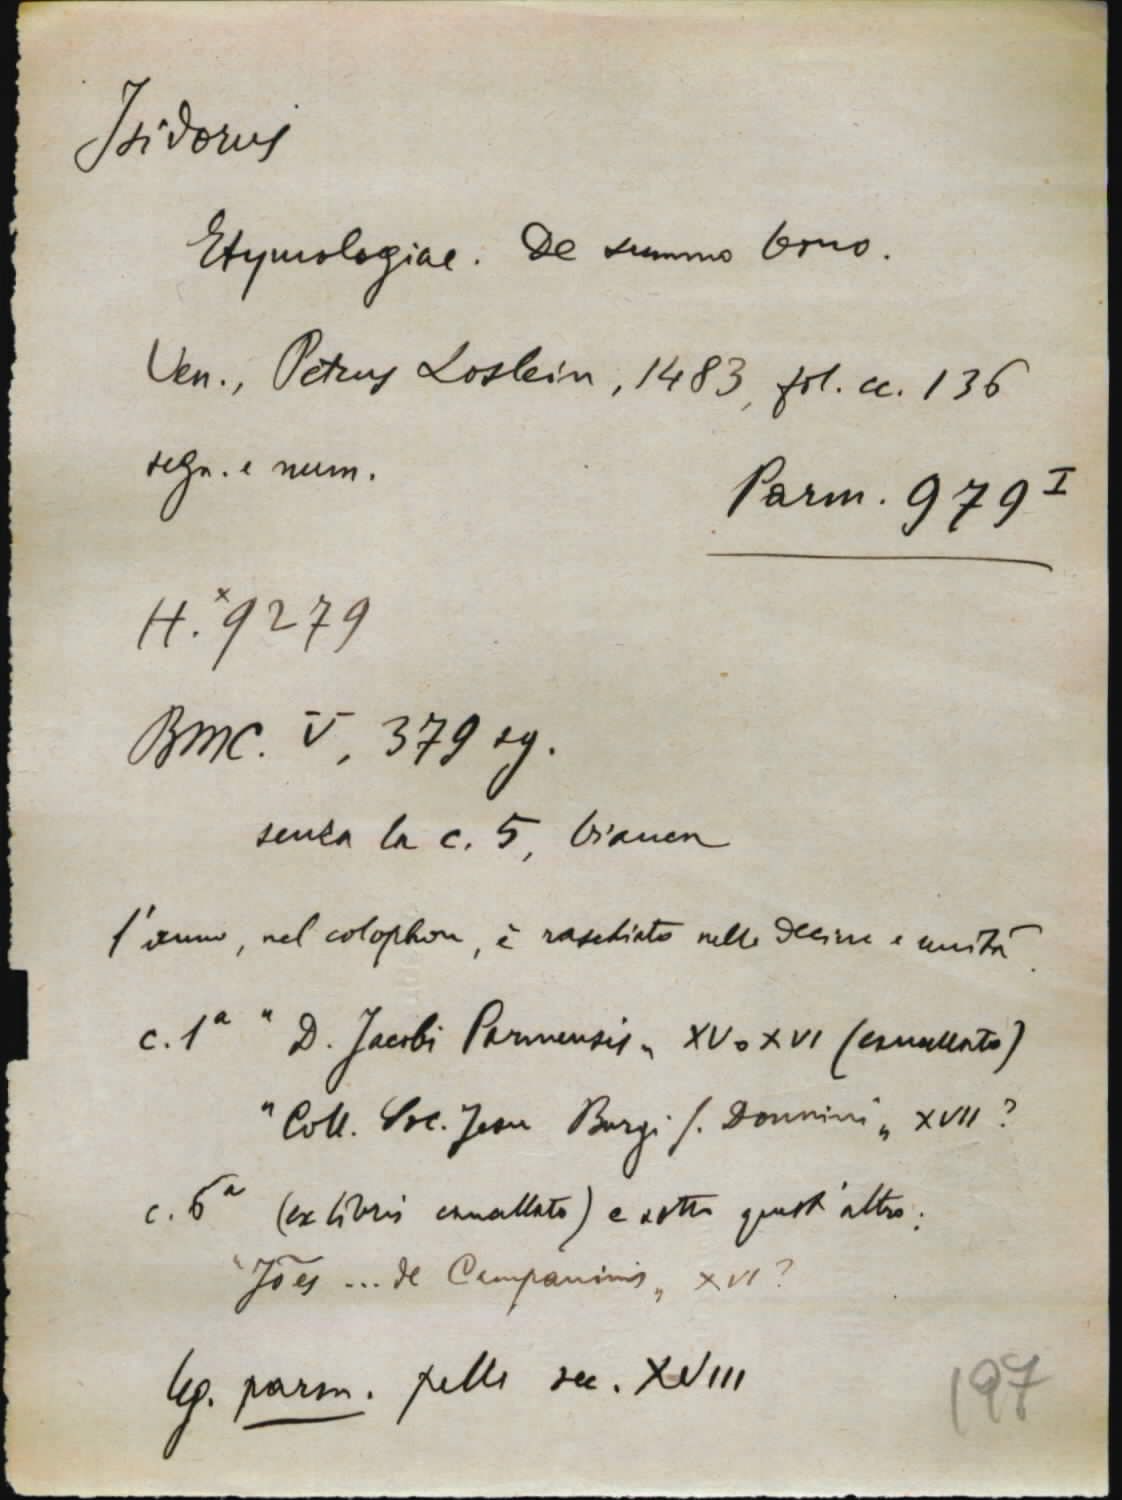 Isidorus
Etymologiae. De summo bono.
Ven., Petrus Loslein, 1483, fol. cc. 136
segn. e num.
Parm. 979 I
H. x 9279
BMC. V, 379 sg.
senza la c. 5, bianca
l'anno, nel colophon, è raschiato nelle decine e unità.
c. 1a " D. Jacobi Parmensis „ XV o XVI (cancellato)
" Coll. Soc. Jesu Burgi S. Donnini „ XVII ?
c. 6a (ex libris cancellato) e sotto quest'altro:
" Jões ... de Campaninis „ XVI ?
leg. parm. pelle sec. XVIII
197